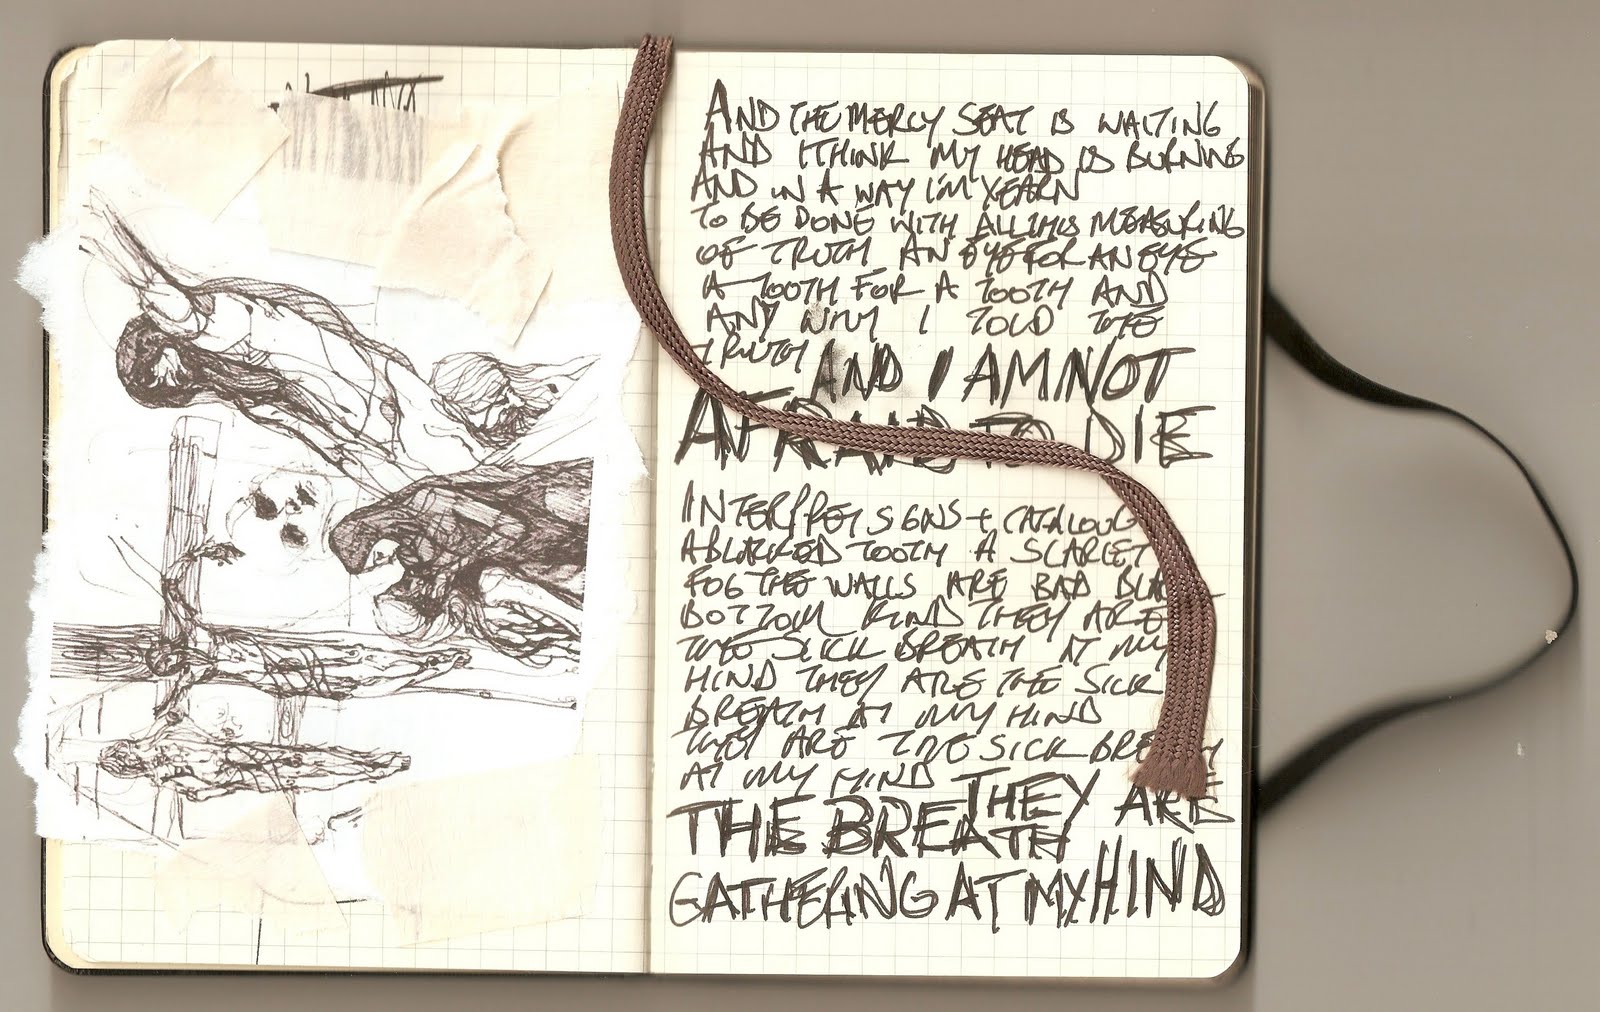 AND THE MERCY SEAT IS WAITING
AND I THINK MY HEAD IS BURNING
AND IN A WAY I'M YEARN
TO BE DONE WITH ALL THIS MEASURING
OF TRUTH AN EYE FOR AN EYE
A TOOTH FOR A TOOTH AND
ANY WAY I TOLD THE
TRUTH AND I AM NOT
AFRAID TO DIE
INTERPRET SIGNS + CATALOUG
A BLACKED TOOTH A SCARLET
FOG THE WALLS ARE BAD BLA
BOTTOM KIND THEY ARE
THE SICK BREATH AT MY
HIND THEY ARE THE SICK
BREATH AT MY HIND
THEY ARE THE SICK BREATH
AT MY HIND THEY ARE
THE BREATH
GATHERING AT MY HIND